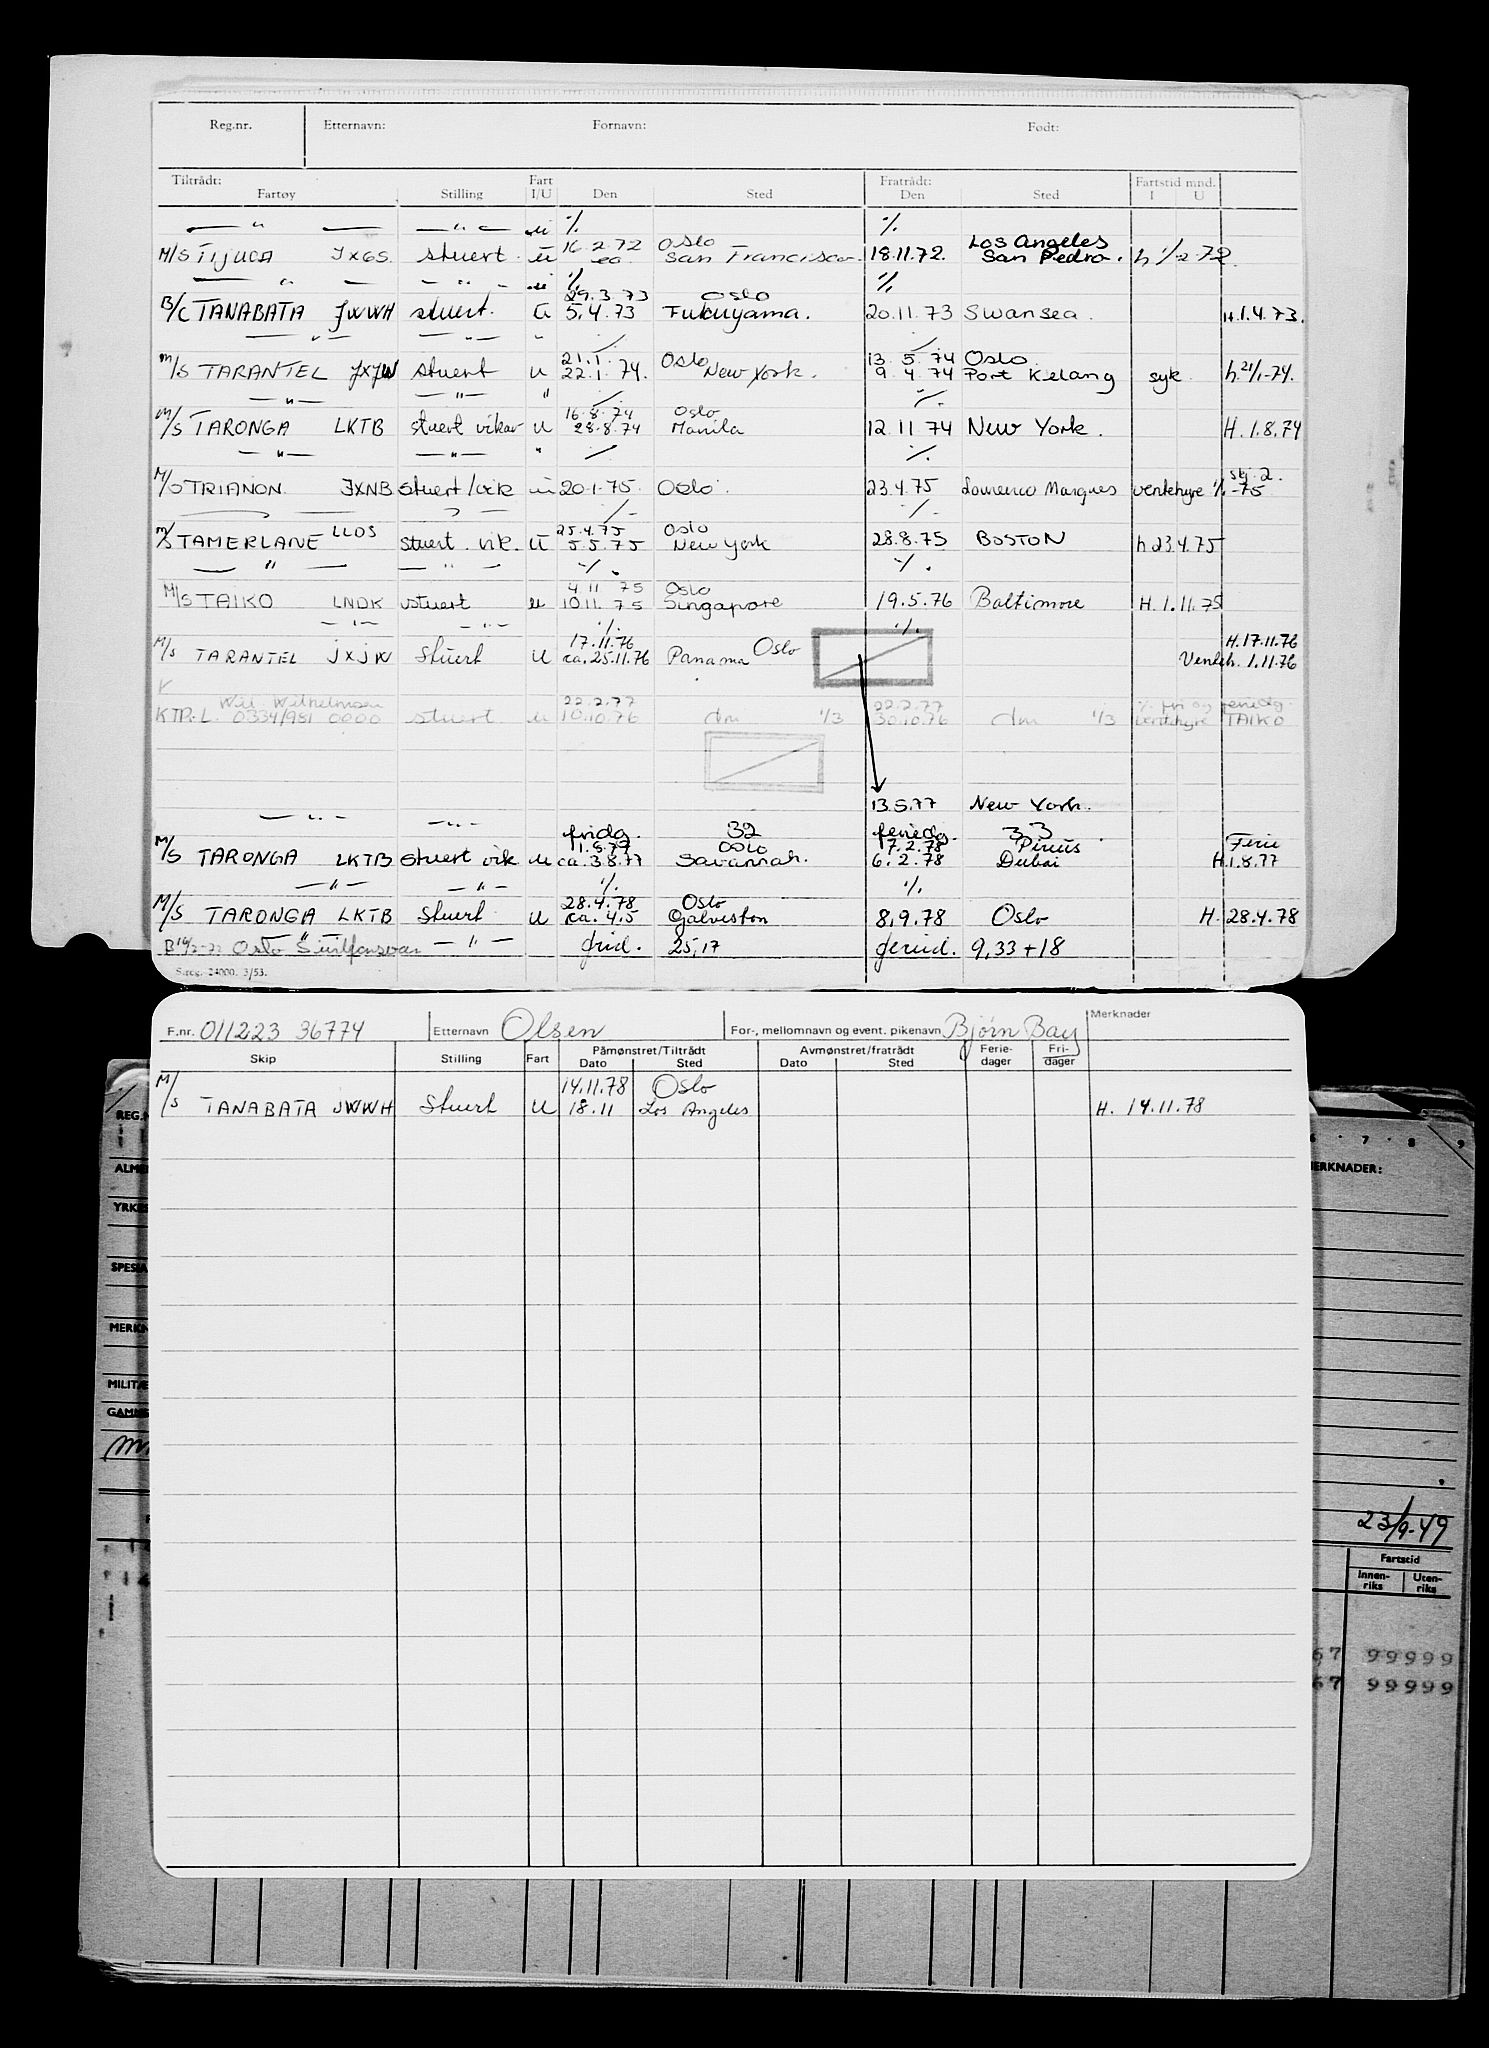 Reg.nr. Etternavn: Fornavn: Født:
Tiltrådt: Fart Fratrådt: Fartstid mnd.
Fartøy Stilling I/U Den Sted Den Sted I U
— " — — — " — u ·/. ·/.
16.2.72 Oslo Los Angeles
M/S TIJUCA JXGS stuert u ca San Francisco 18.11.72. San Pedro. h 1/-2-72.
— " — — " — u ·/. ·/.
29.3.73 Oslo
B/C TANABATA JWWH stuert. U 5.4.73 Fukuyama. 20.11.73 Swansea. H.1.4.73.
— " — — " — " ·/. ·/.
21.1. Oslo 13.5.74 Oslo
M/S TARANTEL JXJW stuert u 22.1.74. New York. 9.4.74 Port Kelang syk h.21/1-74.
— " — — " — " ·/. ·/.
16.8.74 Oslo
M/S TARONGA LKTB stuert vikar u 28.8.74 Manila 12.11.74 New York. H.1.8.74
— " — — " — " ·/. ·/.
M/S TRIANON JXNB stuert/vik u 20.1.75. Oslo. 23.4.75 Lourenco Marques ventehyre 1/2-75
·/. ·/.
25.4.75 Oslo
M/S TAMERLANE LLOS stuert. vik. U 5.5.75 New York 28.8.75 BOSTON h 23.4.75
— " — — " — ·/. ·/.
4.11 75 Oslo
M/S TAIKO LNDK stuert u 10.11.75 Singapore 19.5.76 Baltimore H.1.11.75
— " — — " — ·/. ·/.
17.11.76 Oslo H.17.11.76
M/S TARANTEL JXJW Stuert U ca.25.11.76 Panama Venteh. 1.11.76
Wil Wilhelmsen 22.2.77 22.2.77 ·/. fri og feriedg.
KTR.L. 0334/981 0000 stuert u 10.10.76 dm 1/3 30.10.76 dm 1/3 ventehyre TAIKO
13.5.77 New York.
— " — — " — fridg. 32 feriedg. 33
1.8.77 Oslo 7.2.78 Pireus Ferie
M/S TARONGA LKTB Stuert vik u ca.3.8.77 Savannah. 6.2.78 Dubai H.1.8.77
— " — — " — ·/. ·/.
28.4.78 Oslo
M/S TARONGA LKTB Stuert U ca.4.5 Galveston 8.9.78 Oslo H. 28.4.78
Oslo — " — frid. 25,17 feried. 9,33+18
S.reg. 24000. 3/53.
F.nr. 011223 36774 Etternavn Olsen For-, mellomnavn og event. pikenavn Bjørn Bay Merknader
Skip Stilling Fart Påmønstret/Tiltrådt Avmønstret/fratrådt Ferie-dager Fri-dager
Dato Sted Dato Sted
14.11.78 Oslo
M/S TANABATA JWWH Stuert U 18.11 Los Angeles H. 14.11.78
REG.N
6 · 7 · 8 · 9
ALME
MERKNADER:
YRKES
SPESIA
MERKN
MILITÆ
GAMM
23/9-49
Fartstid
Innen-riks Uten-riks
67 99999
67 99999